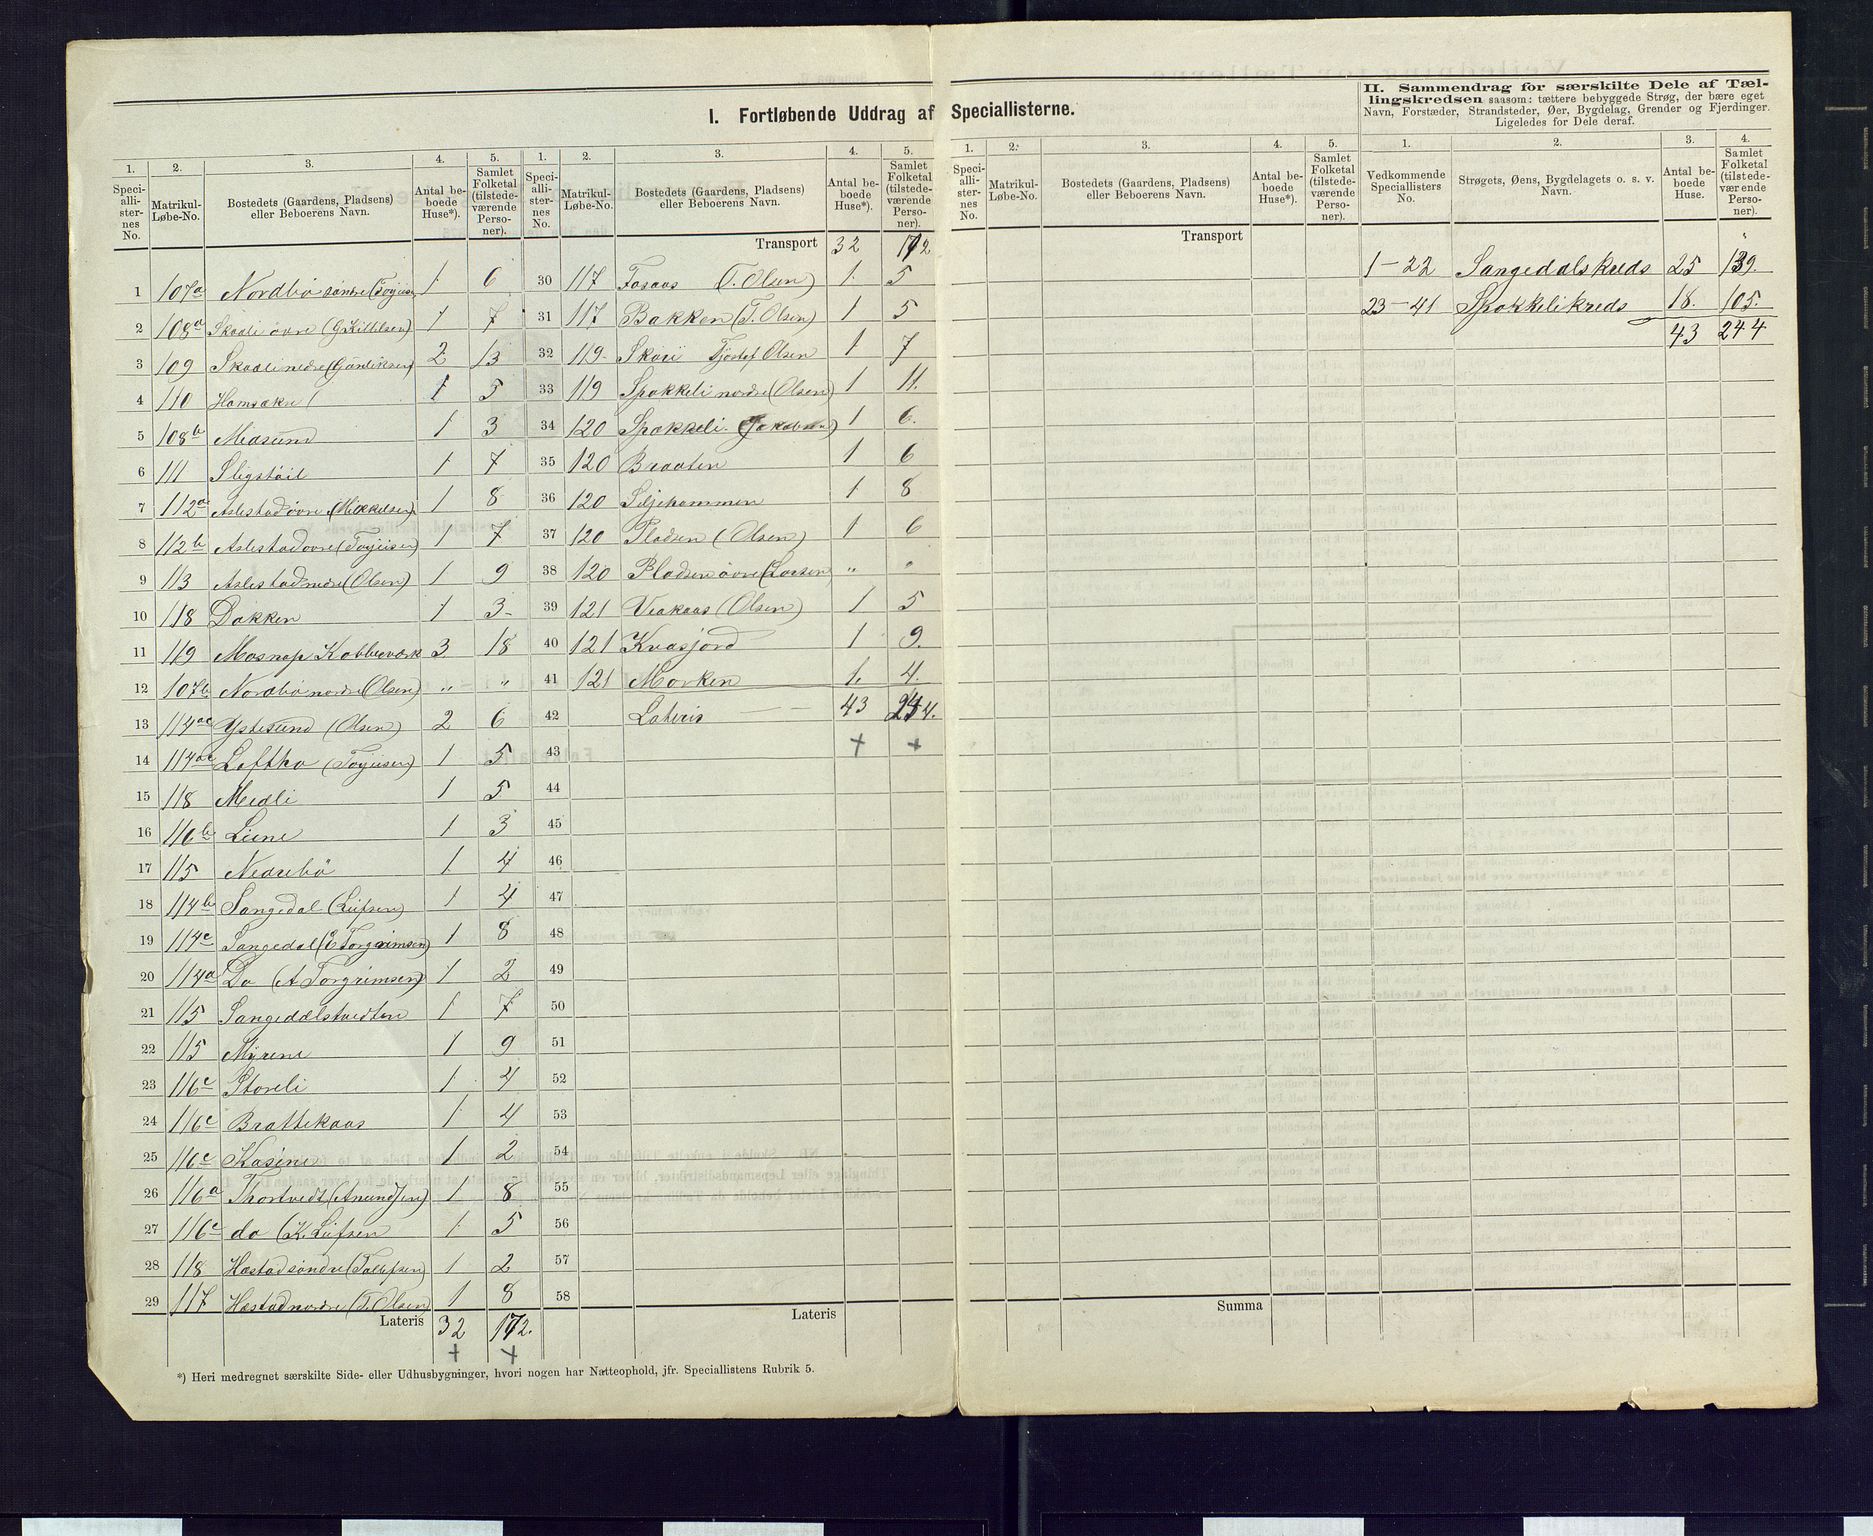 I. Fortløbende Uddrag af Speciallisterne.
1. 2. 3. 4. 5.
Speciallisternes No. Matrikul-Løbe-No. Bostedets (Gaardens, Pladsens) eller Beboerens Navn. Antal beboede Huse*). Samlet Folketal (tilstedeværende Personer).
1 107a Nordbö söndre (Tojusen 1 6
2 108a Skaali övre (G Kittilsen) 1 7
3 109 Skaali nedre (Gunliksen) 2 13
4 110 Hamsakre 1 5
5 108b Midsund 1 3
6 111 Sligstöil 1 7
7 112a Aslestad övre (Mikkelsen) 1 8
8 112b Aslestad övre (Tojusen) 1 7
9 113 Aslestad nedre (Olsen) 1 9
10 118 Dokken 1 3
11 119 Mosnap Kobberværk 3 18
12 107b Nordbö nordre (Olsen) " "
13 114ac Ystesund (Olsen) 2 6
14 114ac Loftho (Tojusen) 1 5
15 118 Medli 1 5
16 110b Liene 1 3
17 115 Nedrebö 1 4
18 114b Sangedal (Leifsen) 1 4
19 114c Sangedal (E Torgrimsen) 1 8
20 114a Do (A Torgrimsen) 1 2
21 115 Sangedalstvedten 1 7
22 115 Myrene 1 9
23 116c Storeli 1 4
24 116c Brattekaas 1 4
25 116c Kasine 1 2
26 116a Thortvedt (Amundsen) 1 8
27 116c do (K. Leifsen 1 5
28 118 Hæstad söndre (Tallefsen) 1 2
29 117 Hæstad nordre (T. Olsen) 1 8
Lateris 32 172.
*) Heri medregnet særskilte Side- eller Udhusbygninger, hvori nogen har Natteophold, jfr. Speciallistens Rubrik 5.
1. 2. 3. 4. 5.
Speciallisternes No. Matrikul-Løbe-No. Bostedets (Gaardens, Pladsens) eller Beboerens Navn. Antal beboede Huse*). Samlet Folketal (tilstedeværende Personer).
Transport 32 172
30 117 Fosaas (T. Olsen) 1 5
31 117 Bakken (T. Olsen) 1 5
32 119 Skori Tjostof Olsen 1 7
33 119 Spokkeli nordre (Olsen) 1 11.
34 120 Spokkeli (Jakobsen) 1 6.
35 120 Braaten 1 6
36 120 Siljehommen 1 8
37 120 Pladsen (Olsen) 1 6
38 120 Pladsen övre (Larsen " "
39 121 Veakaas (Olsen) 1 5
40 121 Kvasjord 1 9.
41 121 Morken 1. 4.
42 Lateris 43 244.
43
44
45
46
47
48
49
50
51
52
53
54
55
56
57
58
Lateris
1. 2. 3. 4. 5.
Speciallisternes No. Matrikul-Løbe-No. Bostedets (Gaardens, Pladsens) eller Beboerens Navn. Antal beboede Huse*). Samlet Folketal (tilstedeværende Personer).
Transport
Summa
II. Sammendrag for særskilte Dele af Tællingskredsen saasom: tættere bebyggede Strøg, der bære eget
Navn, Forstæder, Strandsteder, Øer, Bygdelag, Grender og Fjerdinger.
Ligeledes for Dele deraf.
1. 2. 3. 4.
Vedkommende Speciallisters No. Strøgets, Øens, Bygdelagets o. s. v. Navn. Antal beboede Huse. Samlet Folketal (tilstedeværende Personer).
1-22 Sangedalskreds 25 139.
23-41 Spokkelikreds 18. 105.
43 244